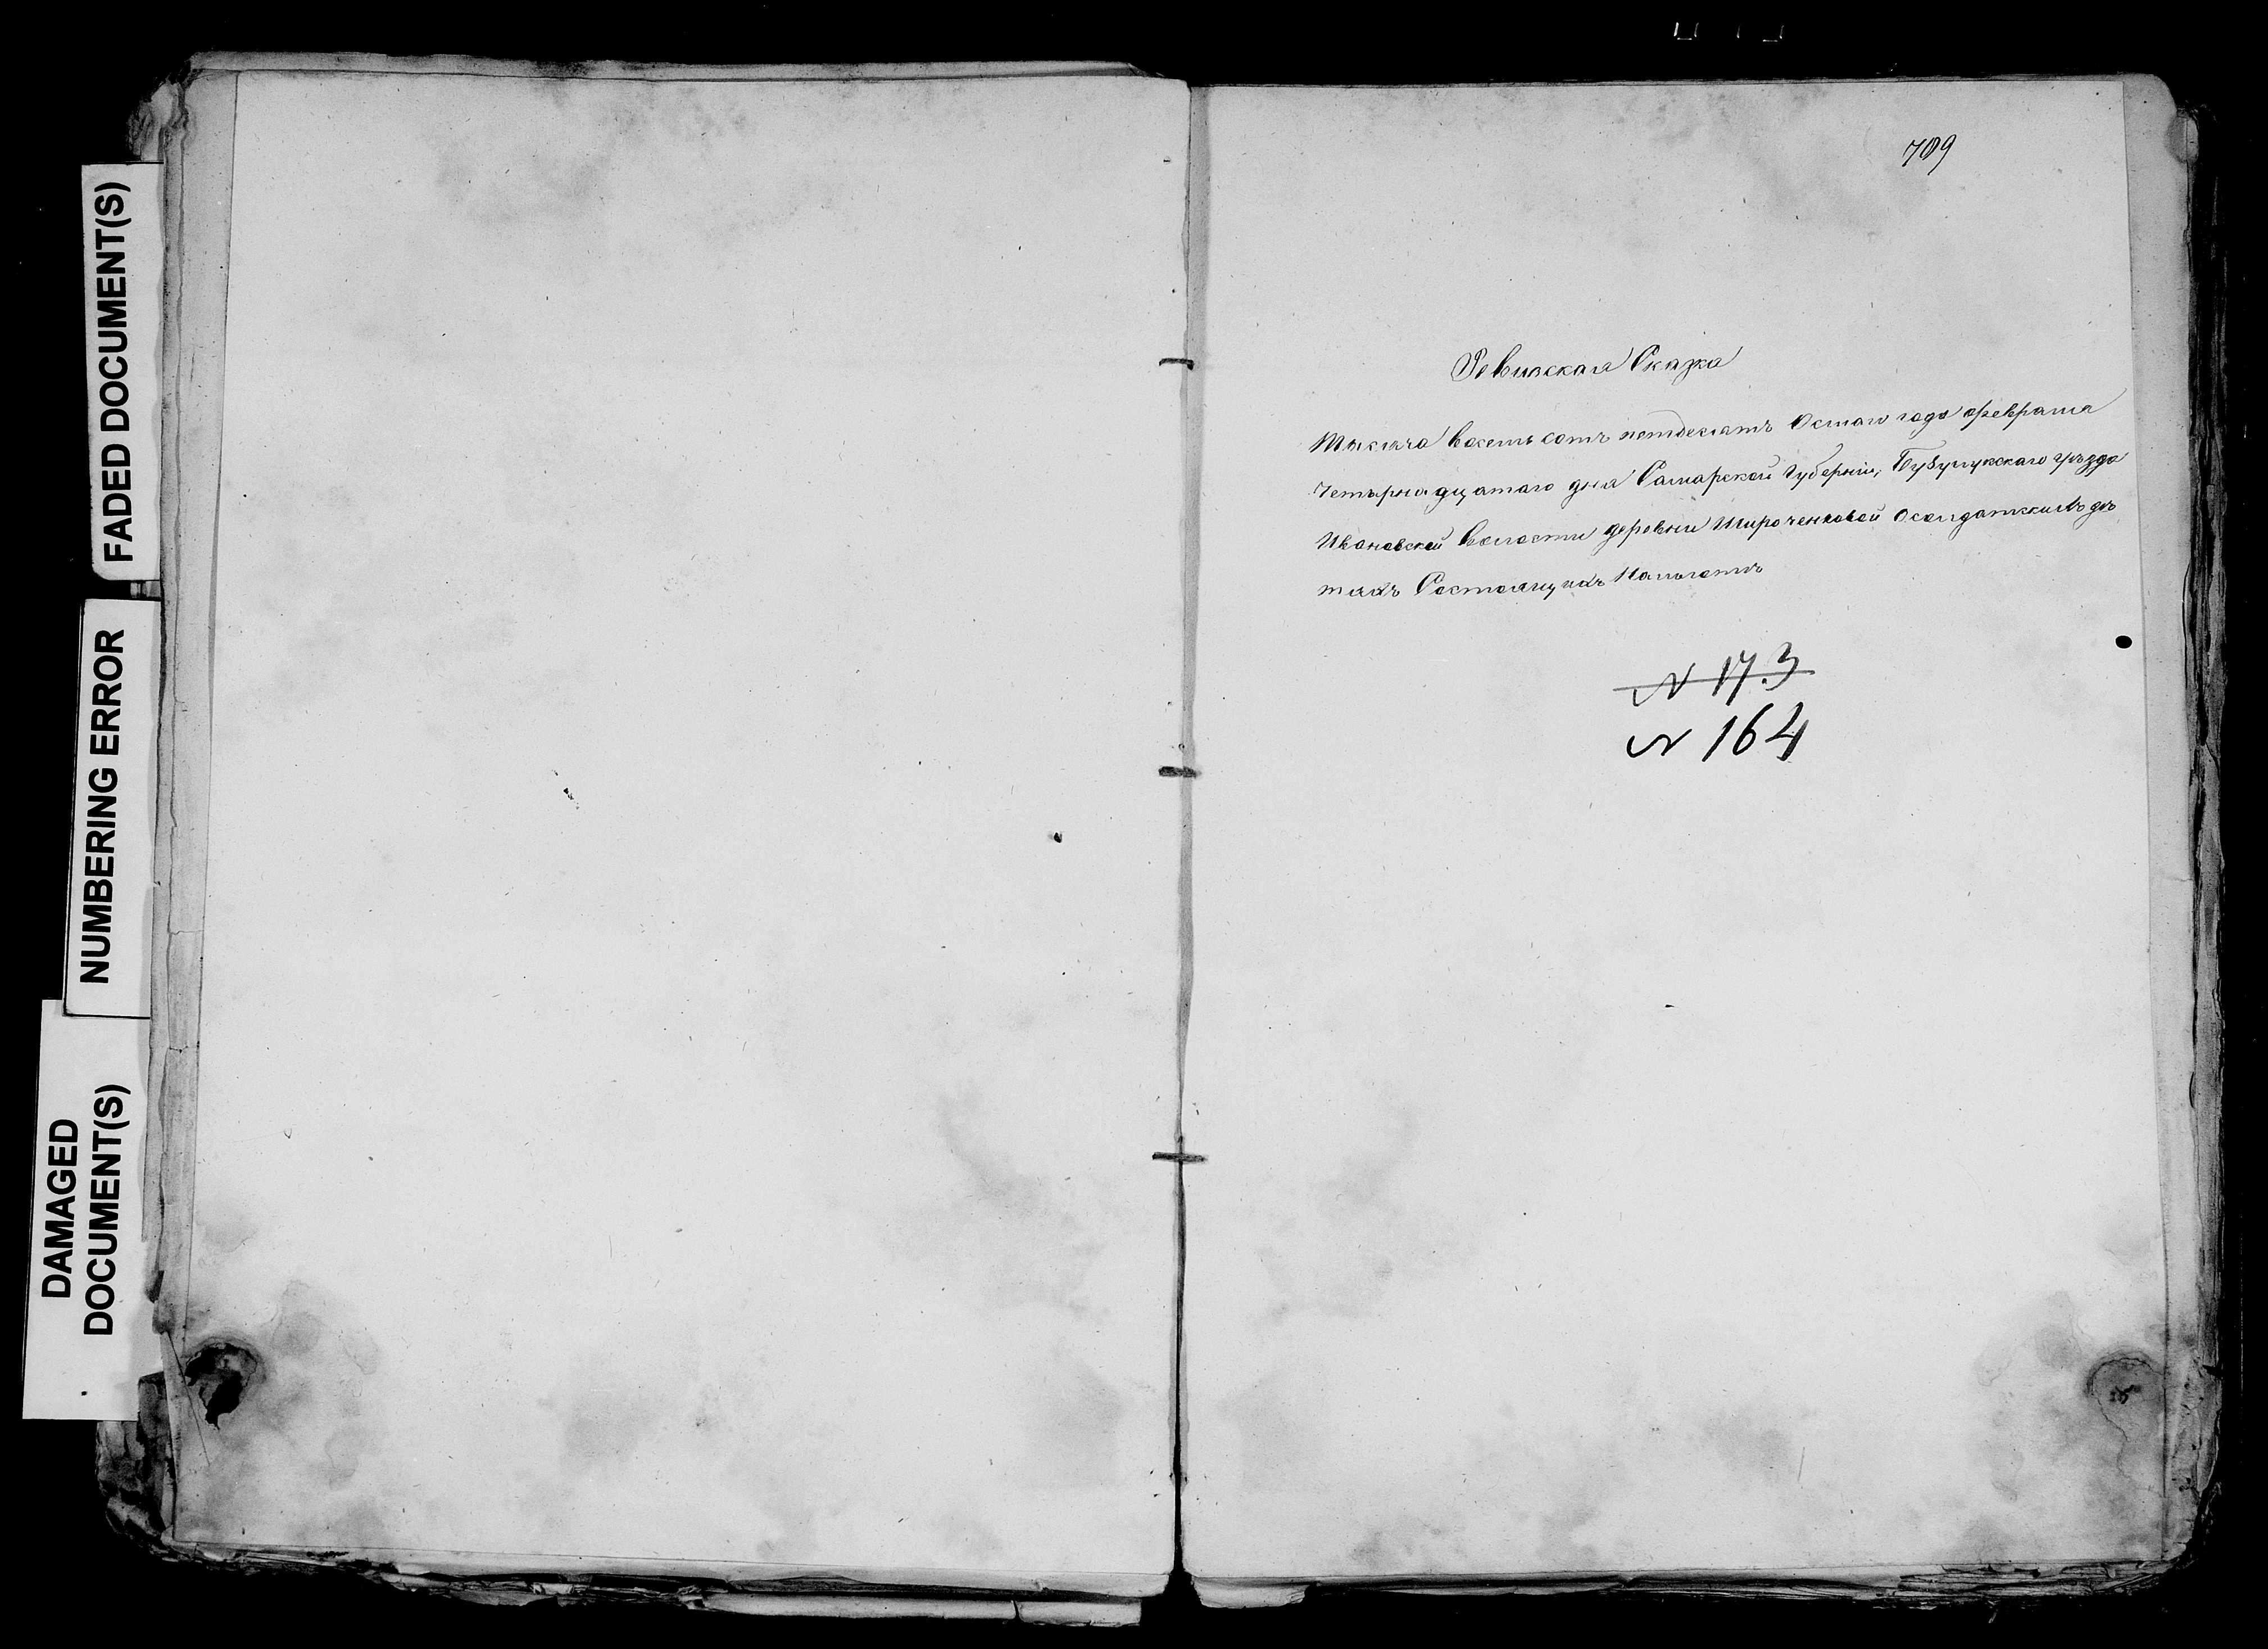 FADED DOCUMENT(S)
NUMBERING ERROR
DAMAGED
DOCUMENT(S)
709
Ревизская Сказка
Тысяча восемь сотъ петдесятъ Осмаго года февраля
Четырнадцатаго дня Самарской Губерніи, Бузулукскаго уѣзда
Ивановской Волости деревни Широченковой Осолдатскихъ дѣ
тяхъ Состоящихъ На
N 173
N 164